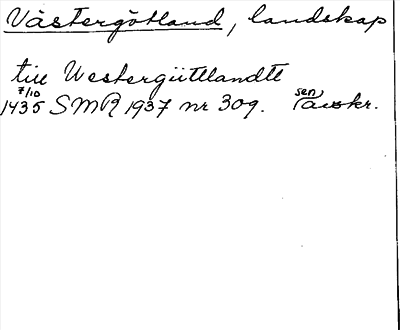 Västergötland, landskap
till Westergüttlandtt
7/10
1435 SMR 1937 nr 309. sen avskr.